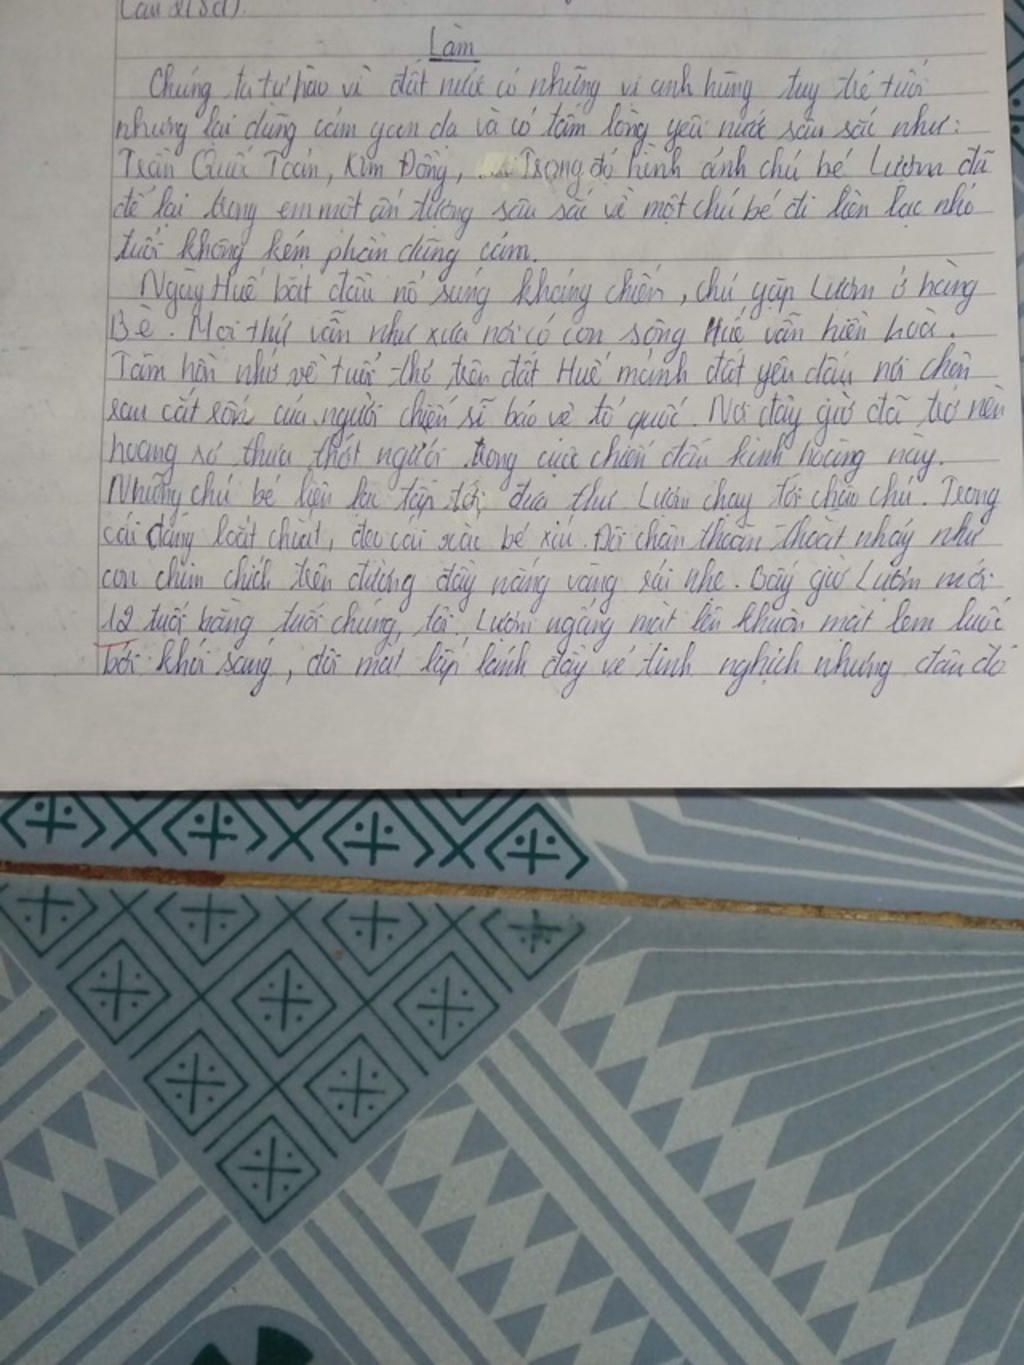 Câu 2(5đ).
Làm
Chúng ta tự hào vì đất nước có những vị anh hùng tuy trẻ tuổi
nhưng lại dũng cảm gan dạ và có tấm lòng yêu nước sâu sắc như:
Trần Quốc Toản, Kim Đồng, ... Trong đó hình ảnh chú bé Lượm đã
để lại trong em một ấn tượng sâu sắc về một chú bé đi liên lạc nhỏ
tuổi không kém phần dũng cảm.
Ngày Huế bắt đầu nổ súng kháng chiến, chú gặp Lượm ở hàng
Bè. Mọi thứ vẫn như xưa nơi có con sông Huế vẫn hiền hoà.
Tâm hồn nhớ về tuổi thơ trên đất Huế mảnh đất yêu dấu nơi chôn
rau cắt rốn của người chiến sĩ bảo vệ tổ quốc. Nơi đây giờ đã trở nên
hoang sơ thưa thớt người trong cuộc chiến đấu kinh hoàng này.
Những chú bé liên lạc tấp tới đưa thư Lượm chạy tới chào chú. Trong
cái dáng loắt choắt, đeo cái xắc bé xíu. Đôi chân thoăn thoắt nhảy như
con chim chích trên đường đầy nắng vàng rải nhẹ. Bây giờ Lượm mới
12 tuổi bằng tuổi chúng tôi. Lượm ngẩng mặt lên khuôn mặt lem luốc
bởi khói súng, đôi mắt lấp lánh đầy vẻ tinh nghịch nhưng đâu đó